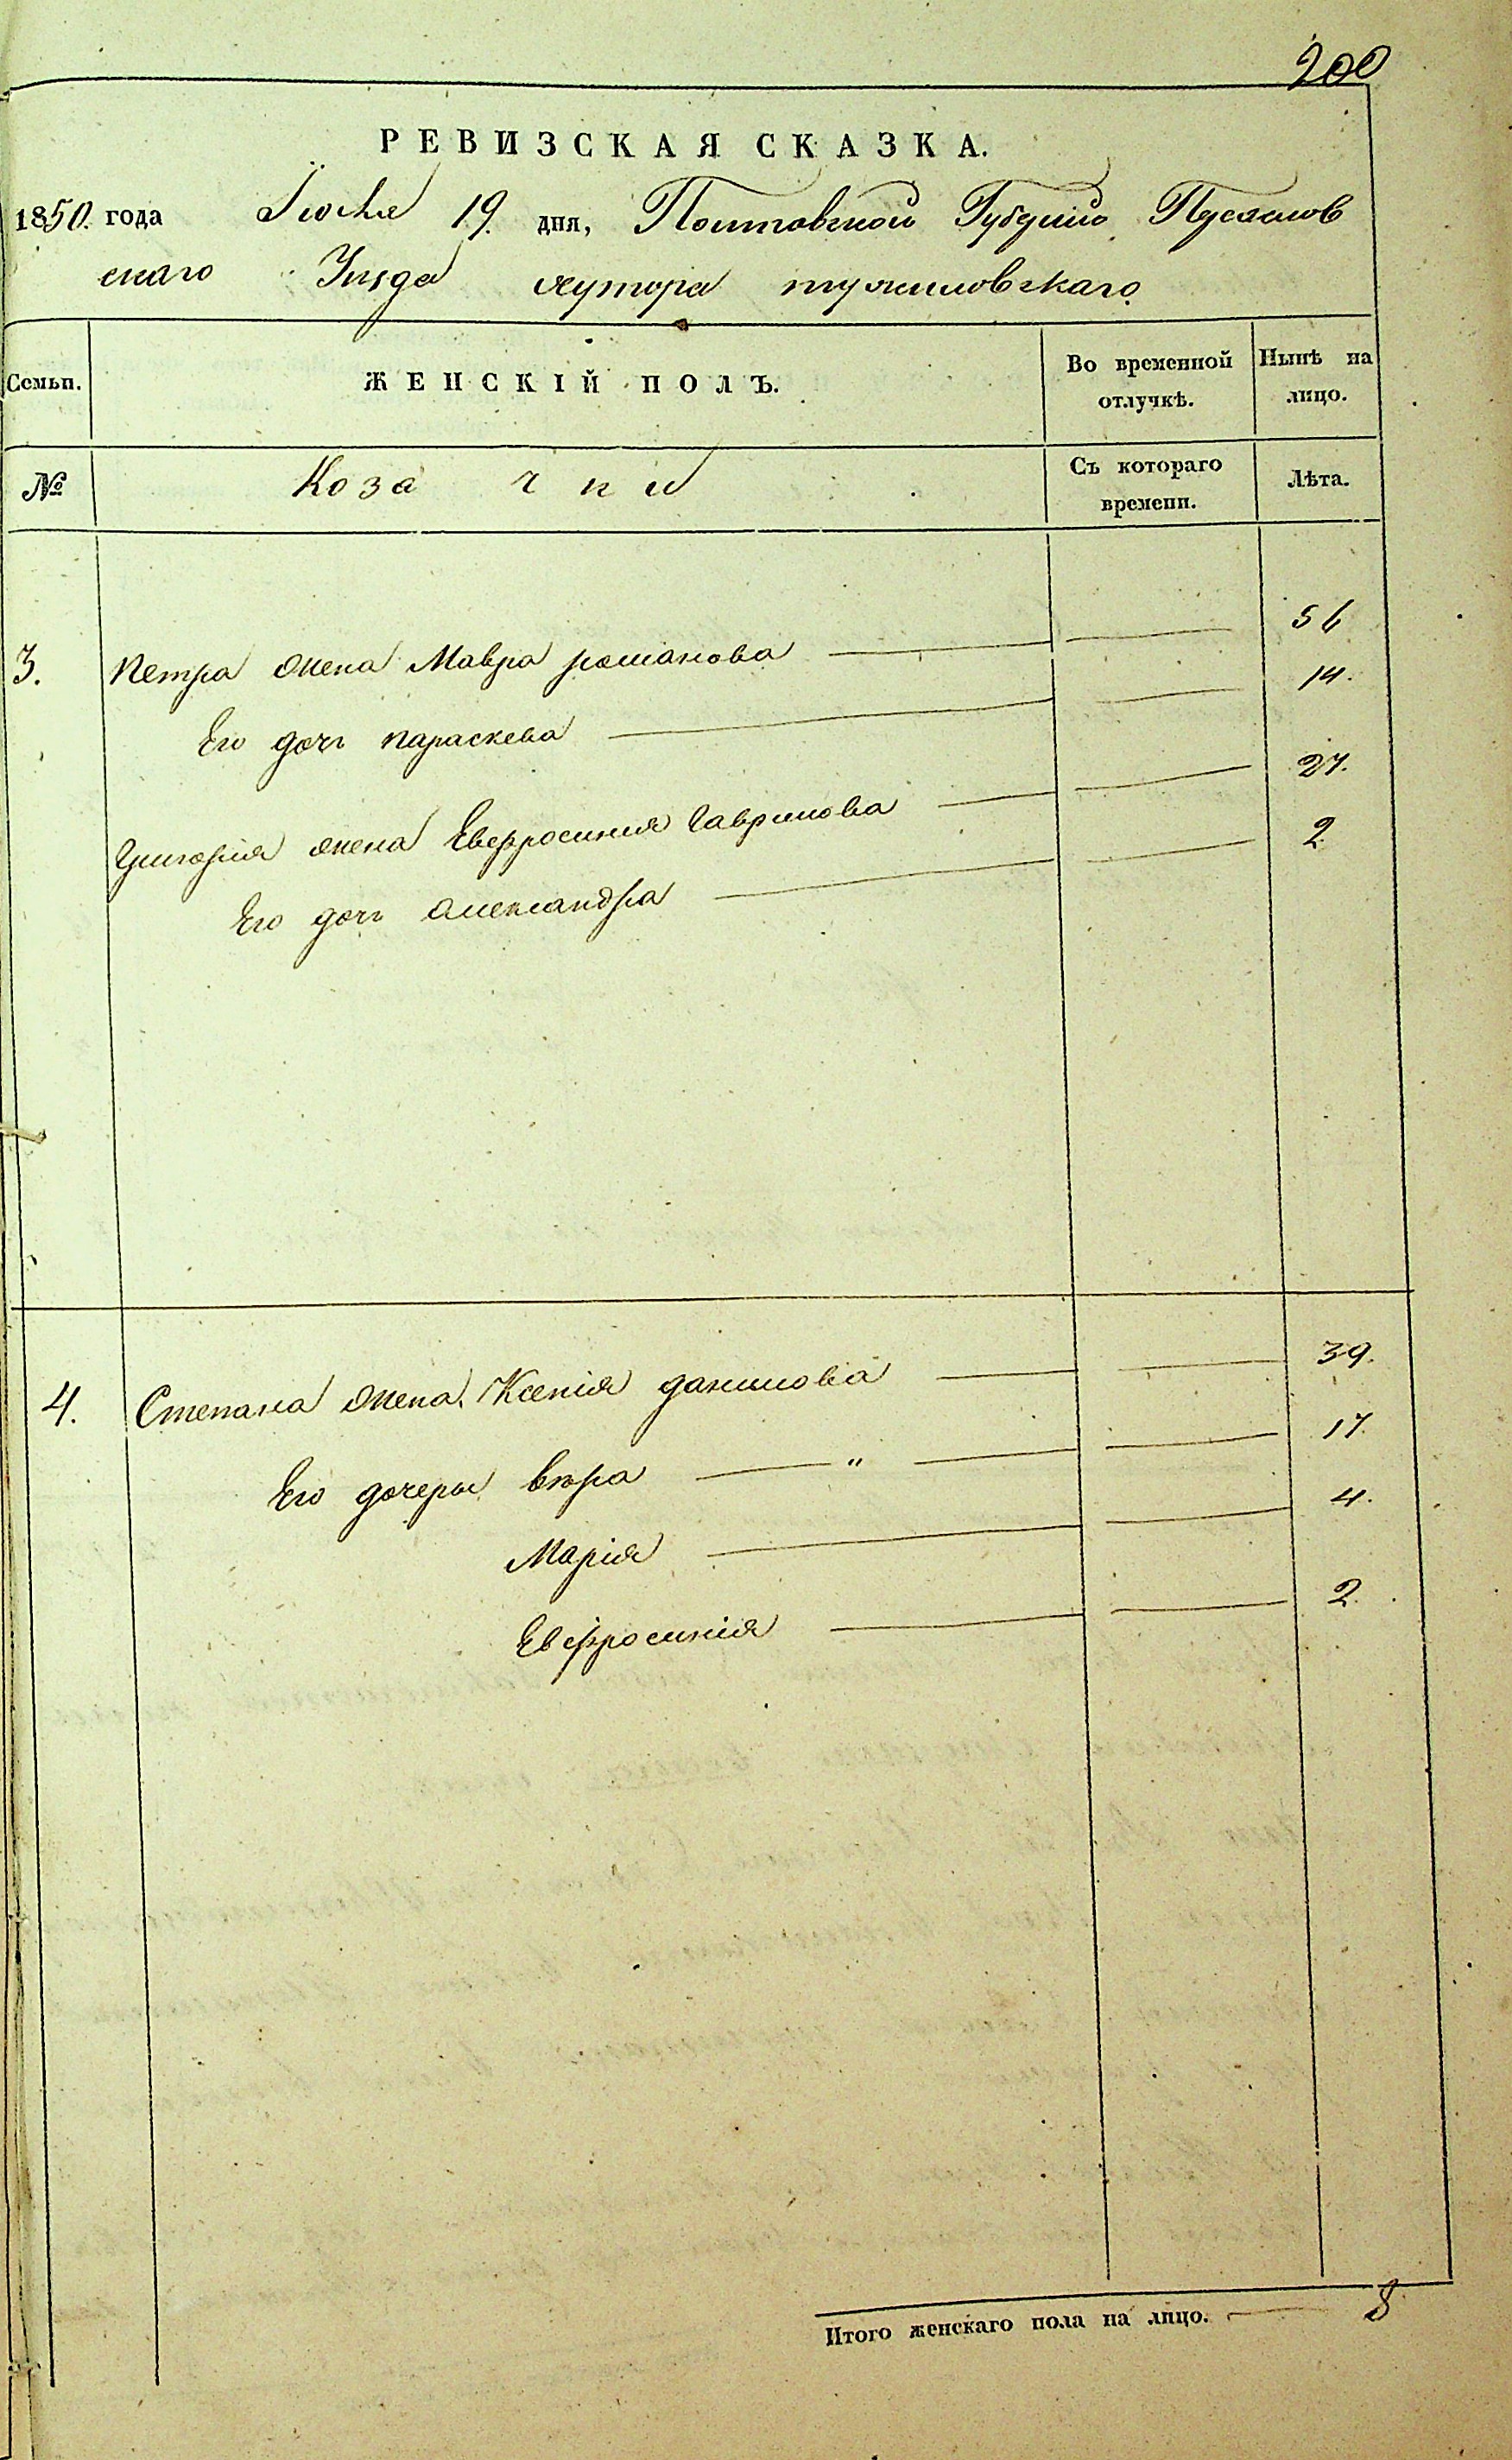 200
РЕВИЗСКАЯ СКАЗКА.
1850. года Іюля 19. дня, Полтавской Губерніи
скаго Уезда хутора
Семьи. ЖЕНСКІЙ ПОЛЪ. Во временной отлучкѣ. Нынѣ на лицо.
№ Коза чки Съ котораго времени. Лѣта.
3. Петра жена Мавра романова 56
Его дочь параскева 14.
Григорія жена Евфросинія Гаврилова 27.
Его дочь александра 2
4. Степана жена Ксенія данилова 39.
Его дочеры вѣра " 17.
Марія 4.
Евфросинія 2.
Итого женскаго пола на лицо. 8